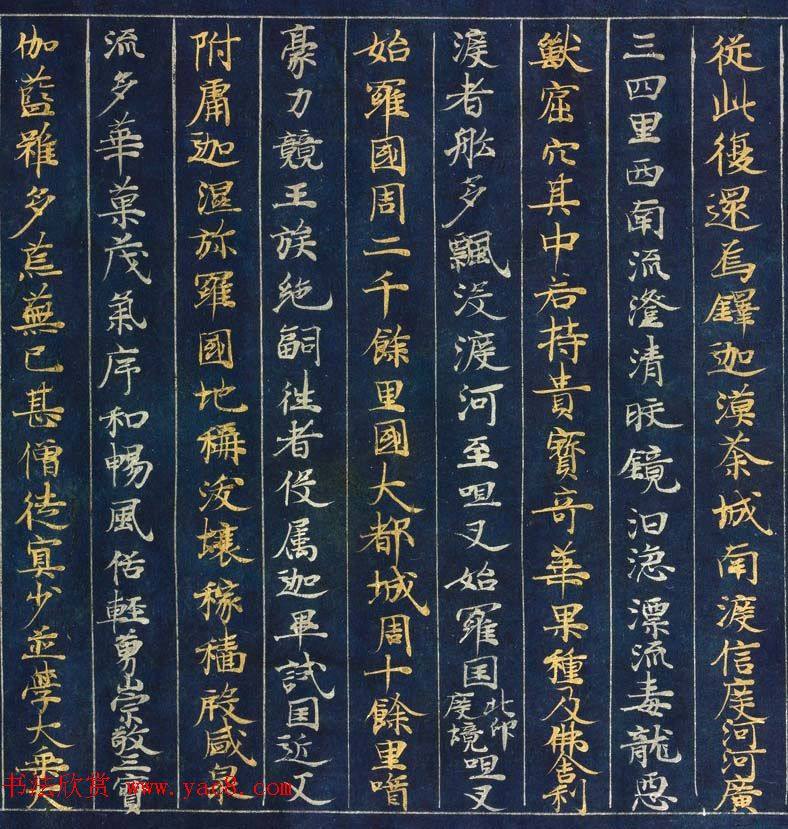 從此復還烏鐸迦漢荼城南渡信度河河廣
三四里西南流澄清皎鏡汩㴔漂流毒龍惡
獸窟穴其中若持貴寶奇華果種及佛舍利
渡者舩多飄没渡河至呾叉始羅囯此印度境呾叉
始羅國周二千餘里國大都城周十餘里酋
豪力競王族絶嗣徃者役属迦畢試囯近又
附庸迦濕弥羅國地稱沃壤稼穡殷盛泉
流多華菓茂氣序和暢風俗輕勇崇敬三寳
伽藍雖多荒蕪已甚僧徒寡少並學大乗
书法欣赏 www.yac8.com